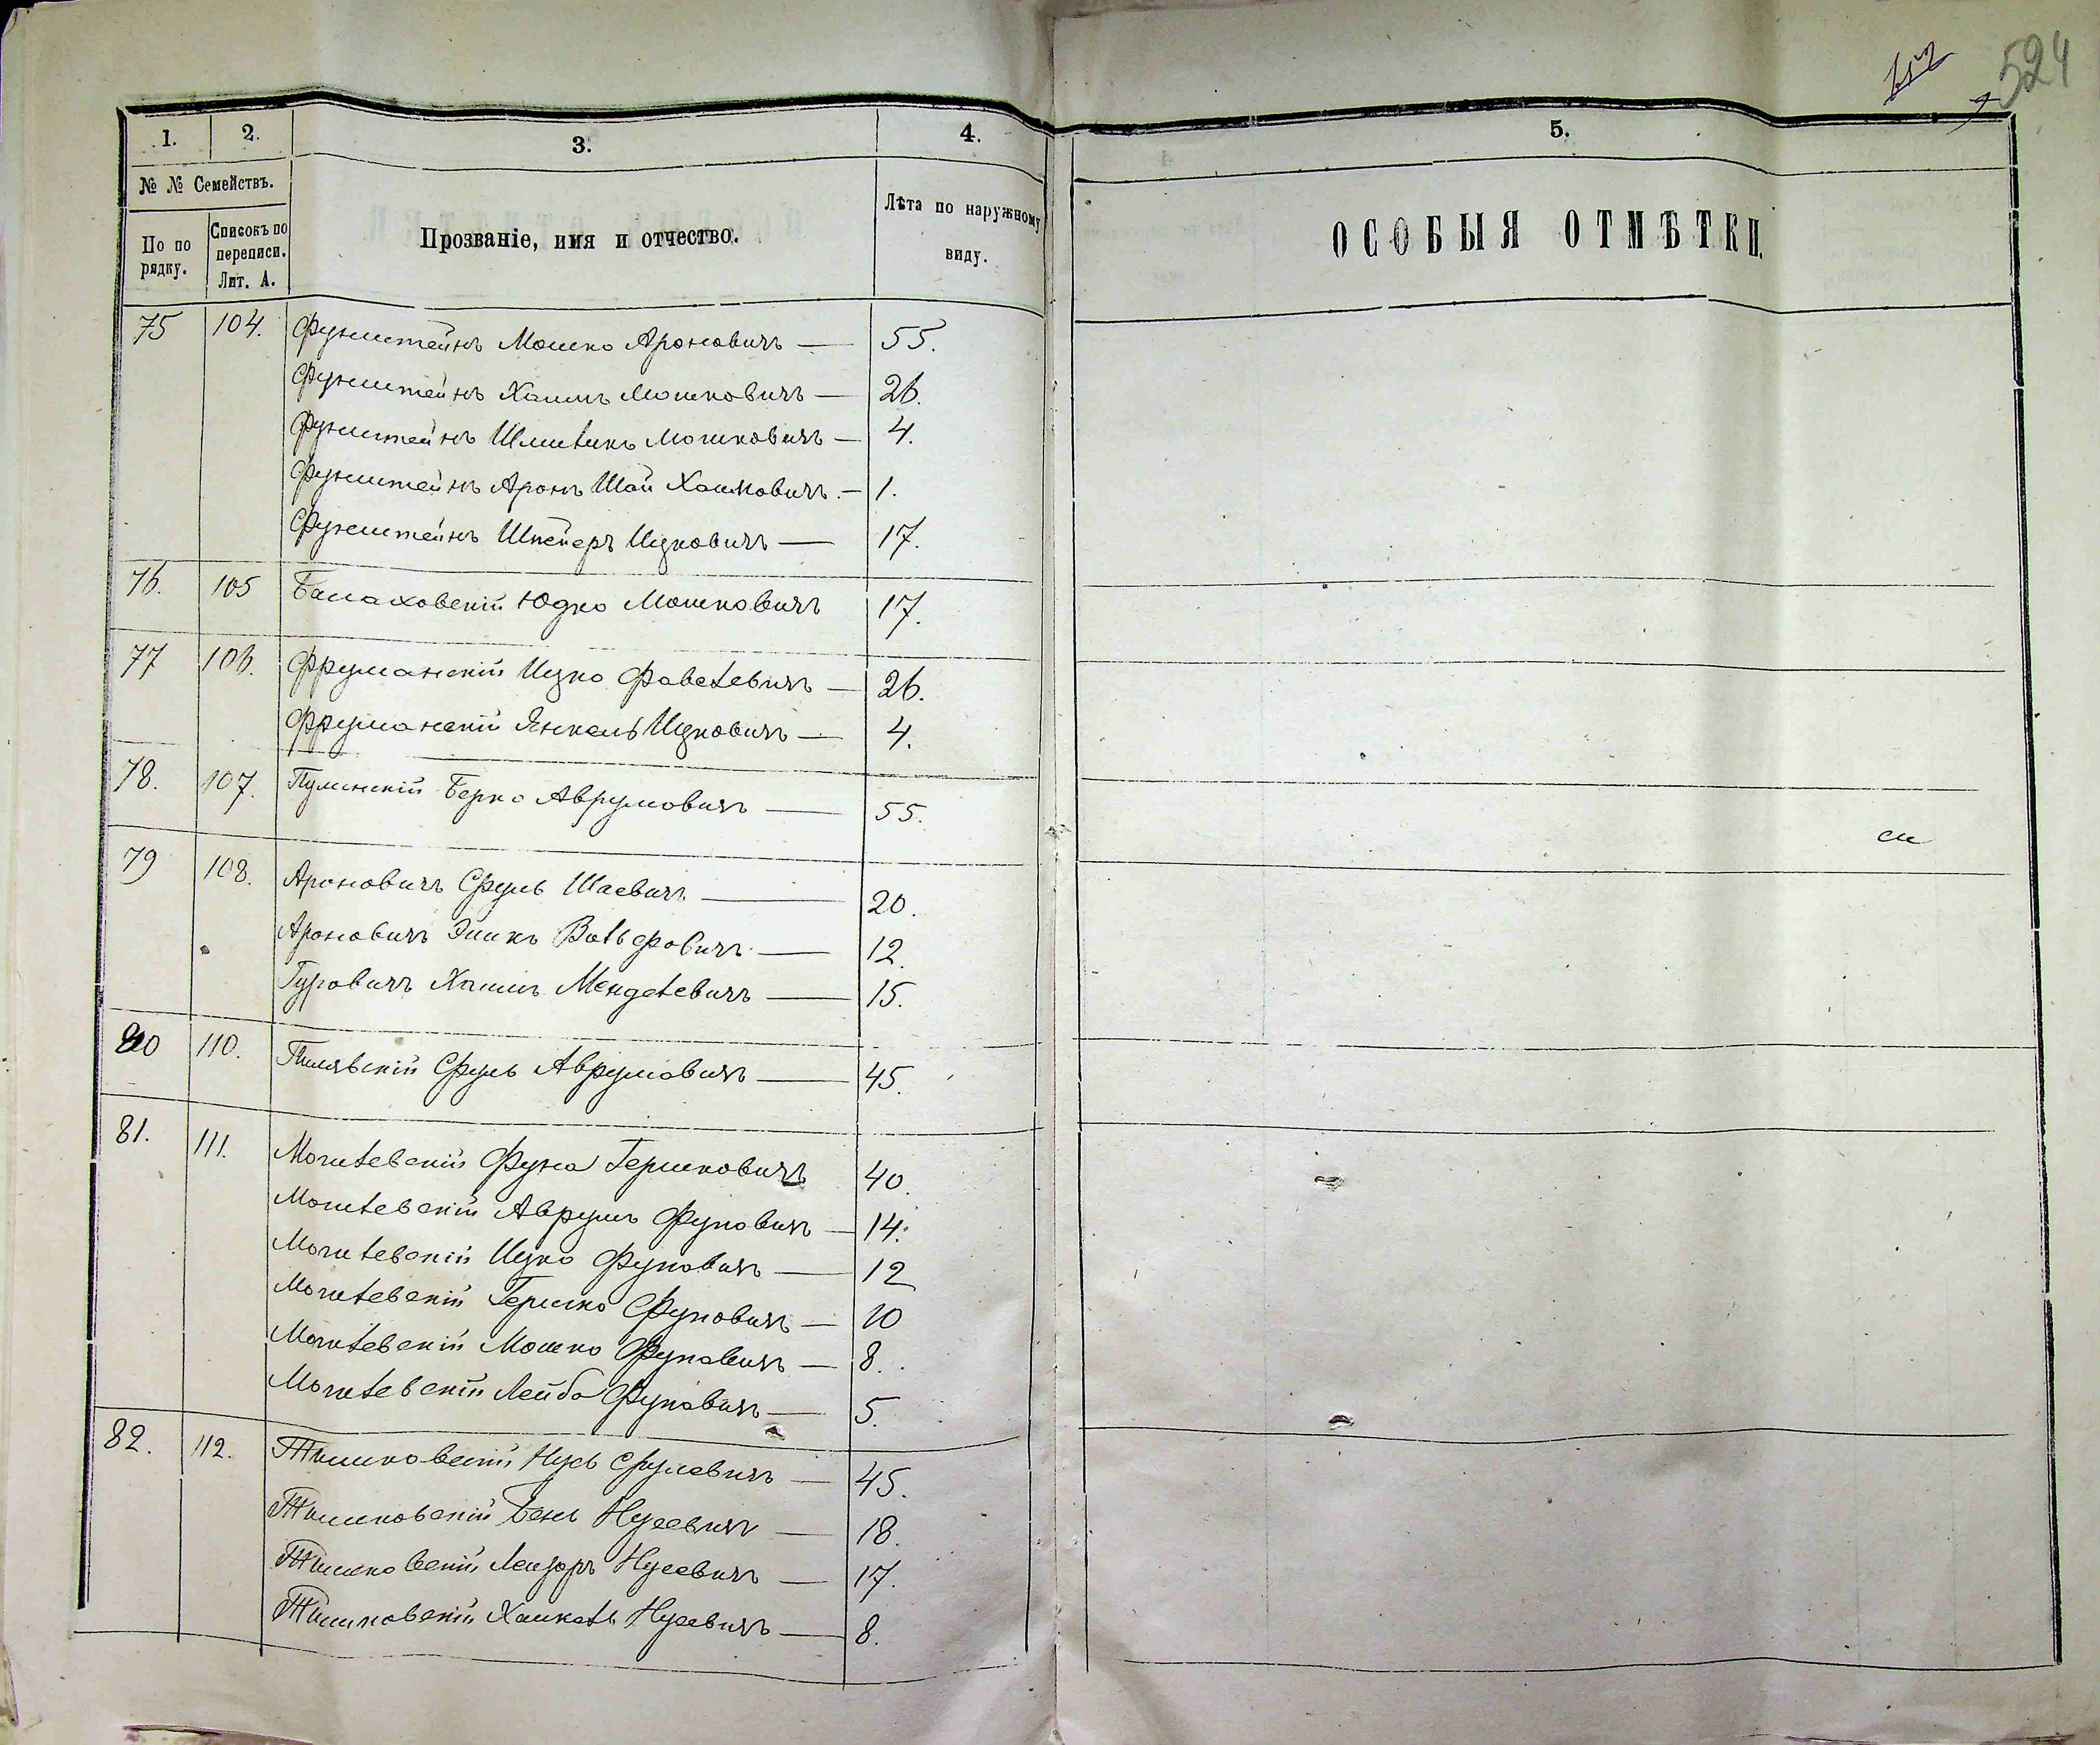 524
1. 2. 3. 4. 5.
№ № Семействъ.
По по рядку.
Списокъ по переписи. Лит. А.
Прозваніе, имя и отчество.
Лѣта по наружному виду.
ОСОБЫЯ ОТМѢТКИ.
75 104. Фунштейнъ Мошко Ароновичъ — 55.
Фунштейнъ Хаимъ Мошковичъ — 26.
Фунштейнъ Шмиликъ Мошковичъ — 4.
Фунштейнъ Аронъ Шай Хаимовичъ — 1.
Фунштейнъ Ицковичъ — 17.
76. 105 Балаховскій Юдко Мошковичъ 17.
77 106. Фруманскій Ицко Фавелевичъ — 26.
Фруманскій Янкель Ицковичъ — 4.
78. 107. Пулинскій Берко Аврумовичъ — 55.
79 108. Ароновичъ Сруль Шаевичъ — 20.
Ароновичъ Эйикъ Вольфовичъ — 12.
Гуровичъ Хаимъ Менделевичъ — 15.
80 110. Пилявскій Сруль Аврумовичъ — 45.
81. 111. Могилевскій Фука Гершковичъ 40.
Могилевскій Аврумъ Фуковичъ — 14.
Могилевскій Ицко Фуковичъ — 12
Могилевскій Гершко Фуковичъ — 10
Могилевскій Мошко Фуковичъ — 8.
Могилевскій Лейба Фуковичъ — 5.
82. 112. Тышковскій Нусь Срулевичъ — 45.
Тышковскій Бень Нусевичъ — 18.
Тышковскій Лейзоръ Нусевичъ — 17.
Тышковскій Хаикель Нусевичъ — 8.